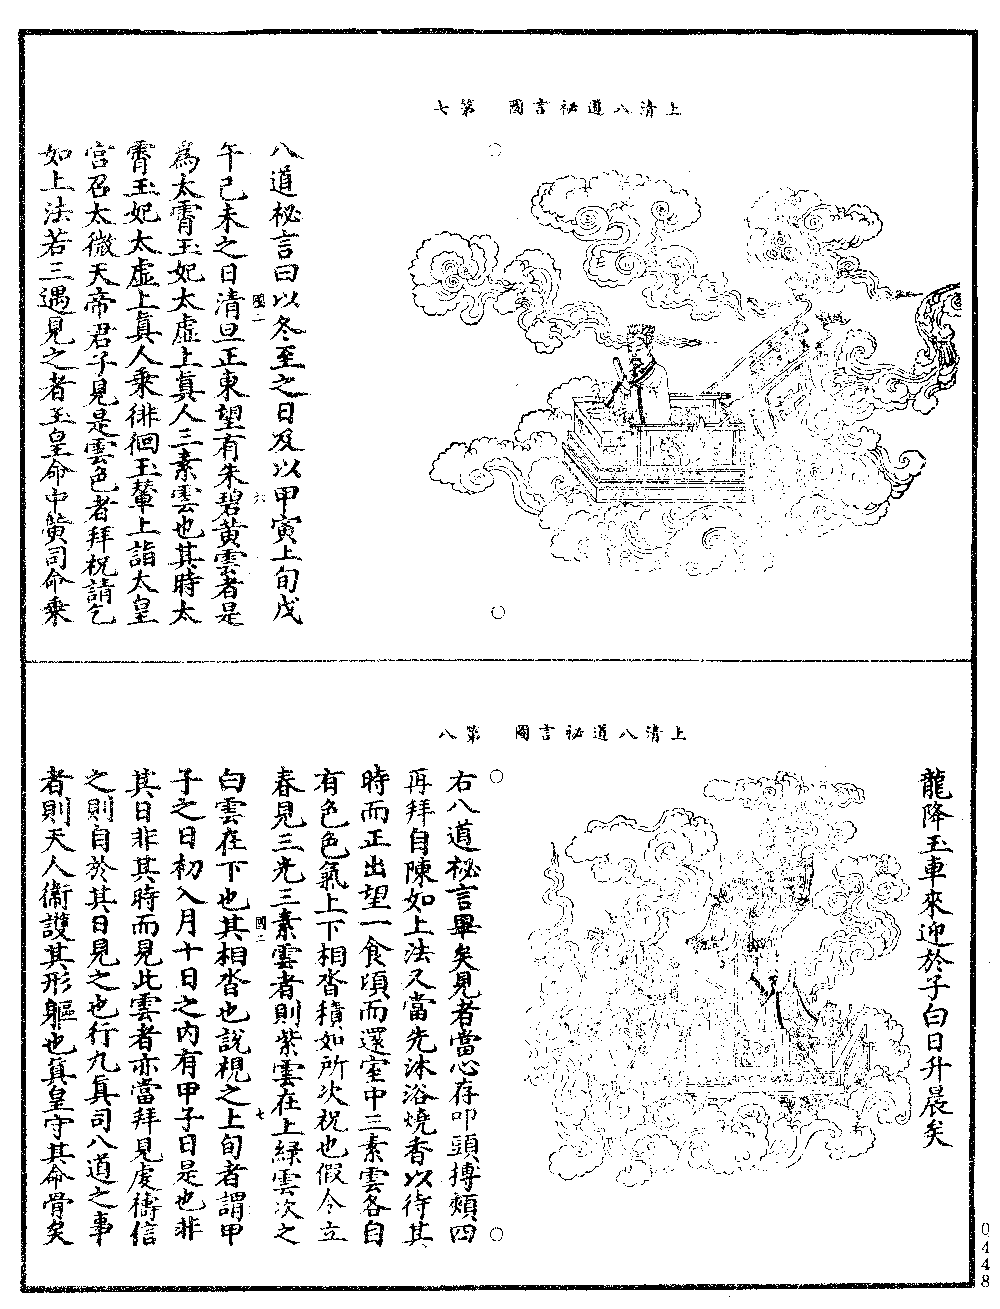 上清八道祕言圖　第七
八道祕言曰以冬至之日及以甲寅上旬戊
午己未之日清旦正東望有朱碧黃雲者是
為太霄玉妃太虛上真人三素雲也其時太
霄玉妃太虛上真人乘徘徊玉輦上詣大皇
宮召太微天帝君子見是雲色者拜祝請乞
如上法若三遇見之者玉皇命中黃司命乘
圖一
六
上清八道祕言圖　第八
龍降玉車來迎於子白日升晨矣
右八道祕言畢矣見者當心存叩頭搏頰四
再拜自陳如上法又當先沐浴燒香以待其
時而正出望一食頃而還室中三素雲各自
有色色氣上下相沓積如所次祝也假令立
春見三光三素雲者則紫雲在上綠雲次之
白雲在下也其相沓也說視之上旬者謂甲
子之日初入月十日之內有甲子日是也非
其日非其時而見此雲者亦當拜見處禱信
之則自於其日見之也行九真司八道之事
者則天人衛護其形軀也真皇守其命骨矣
圖二
七
0448